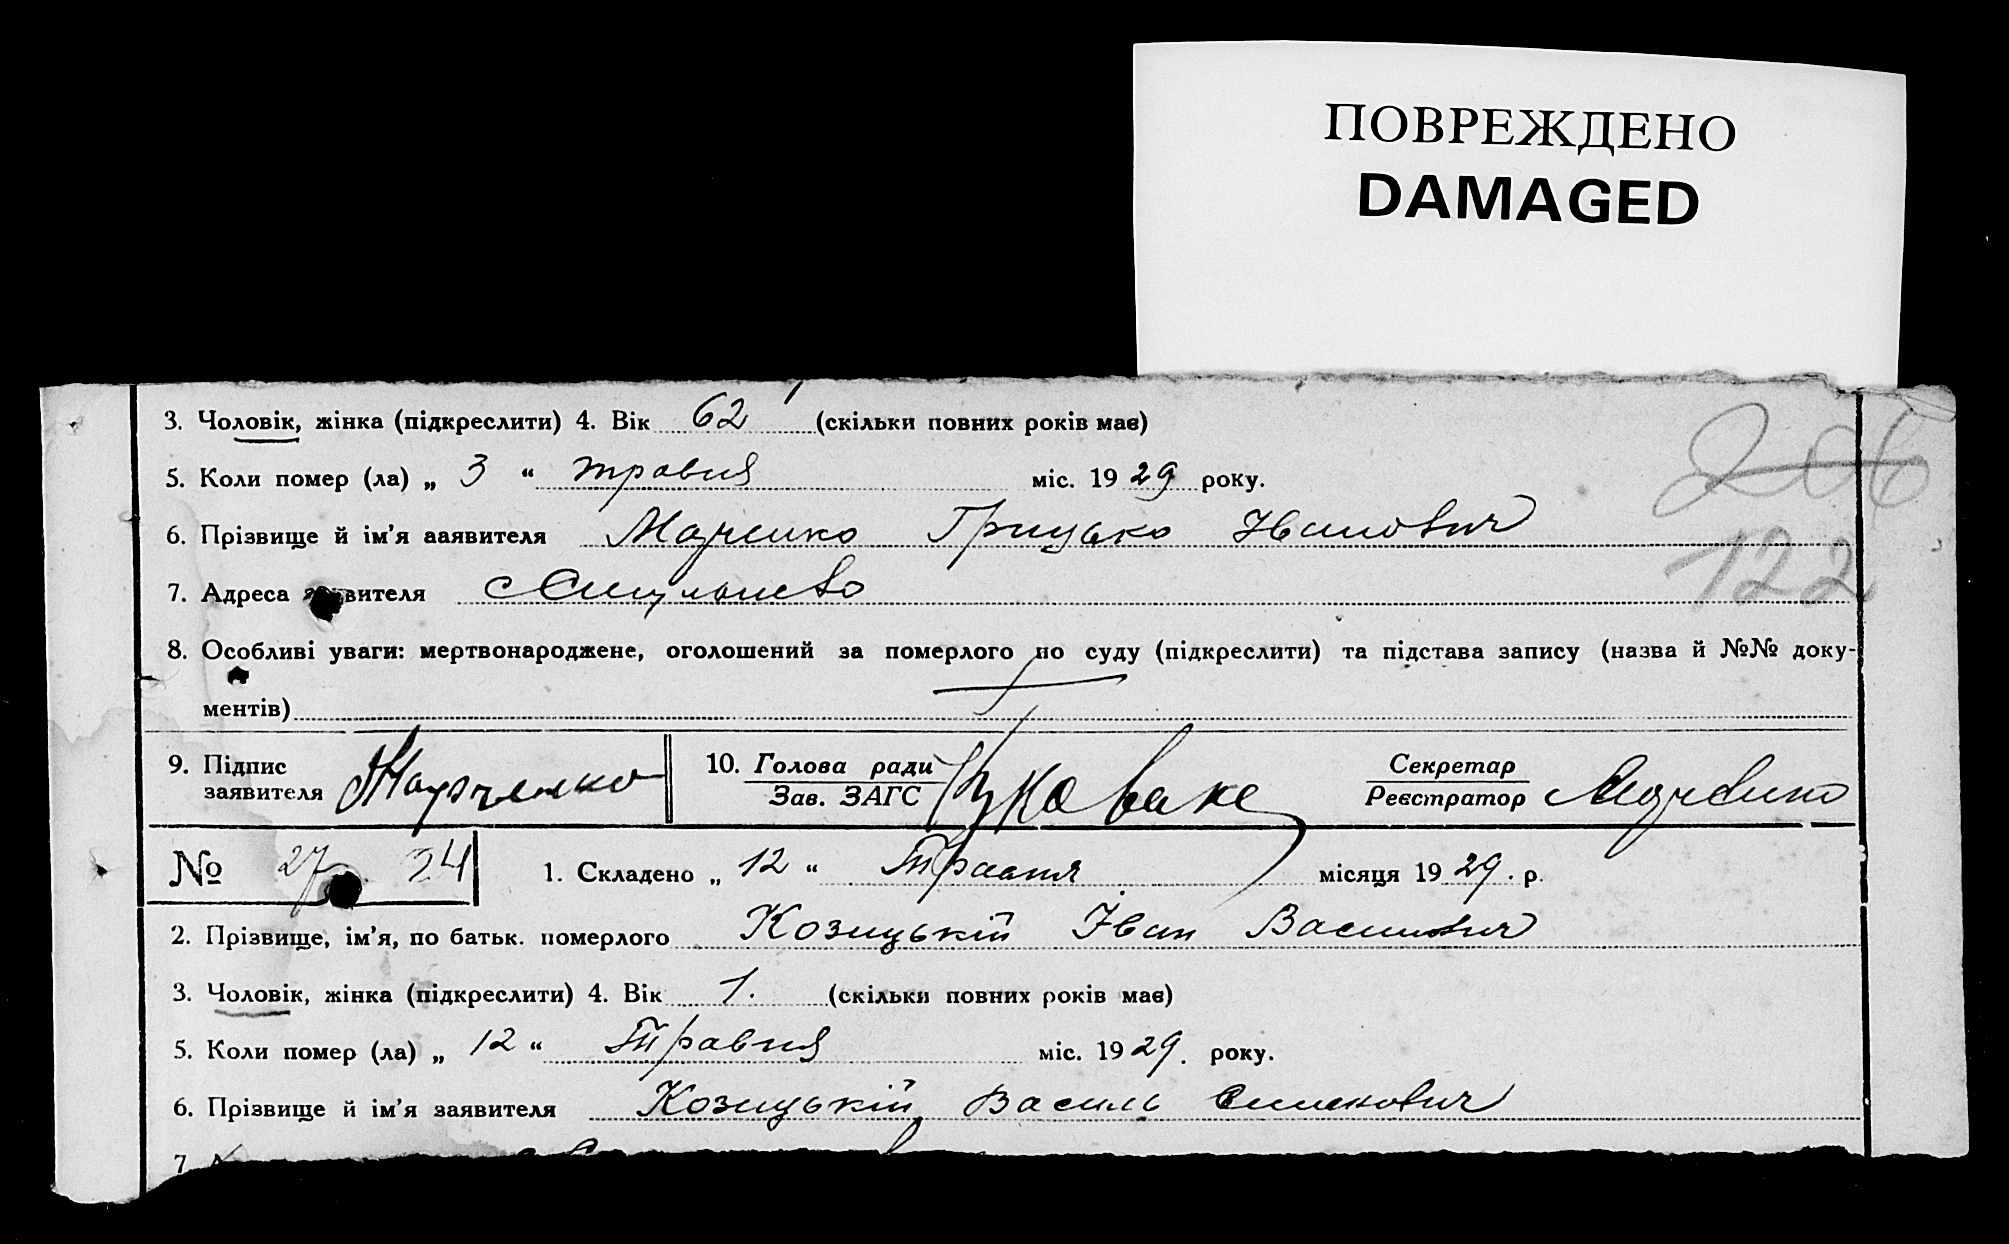 ПОВРЕЖДЕНО
DAMAGED
3. Чоловік, жінка (підкреслити) 4. Вік 62 (скільки повних років має)
206
5. Коли помер (ла) „ 3 “ травня міс. 19 29 року.
6. Прізвище й ім'я заявителя Марченко Грицько Иванович
122
7. Адреса заявителя с
8. Особливі уваги: мертвонароджене, оголошений за померлого по суду (підкреслити) та підстава запису (назва й №№ доку-
ментів)
9. Підпис заявителя Марченко 10. Голова ради Зав. ЗАГС Секретар Реєстратор
№ 27 34 1. Складено „ 12 “ Травня місяця 19 29. р.
2. Прізвище, ім'я, по батьк. померлого Козицькій Іван Васильович
3. Чоловік, жінка (підкреслити) 4. Вік 1. (скільки повних років має)
5. Коли помер (ла) „ 12 “ Травня міс. 19 29. року.
6. Прізвище й ім'я заявителя Козицькій Василь
7